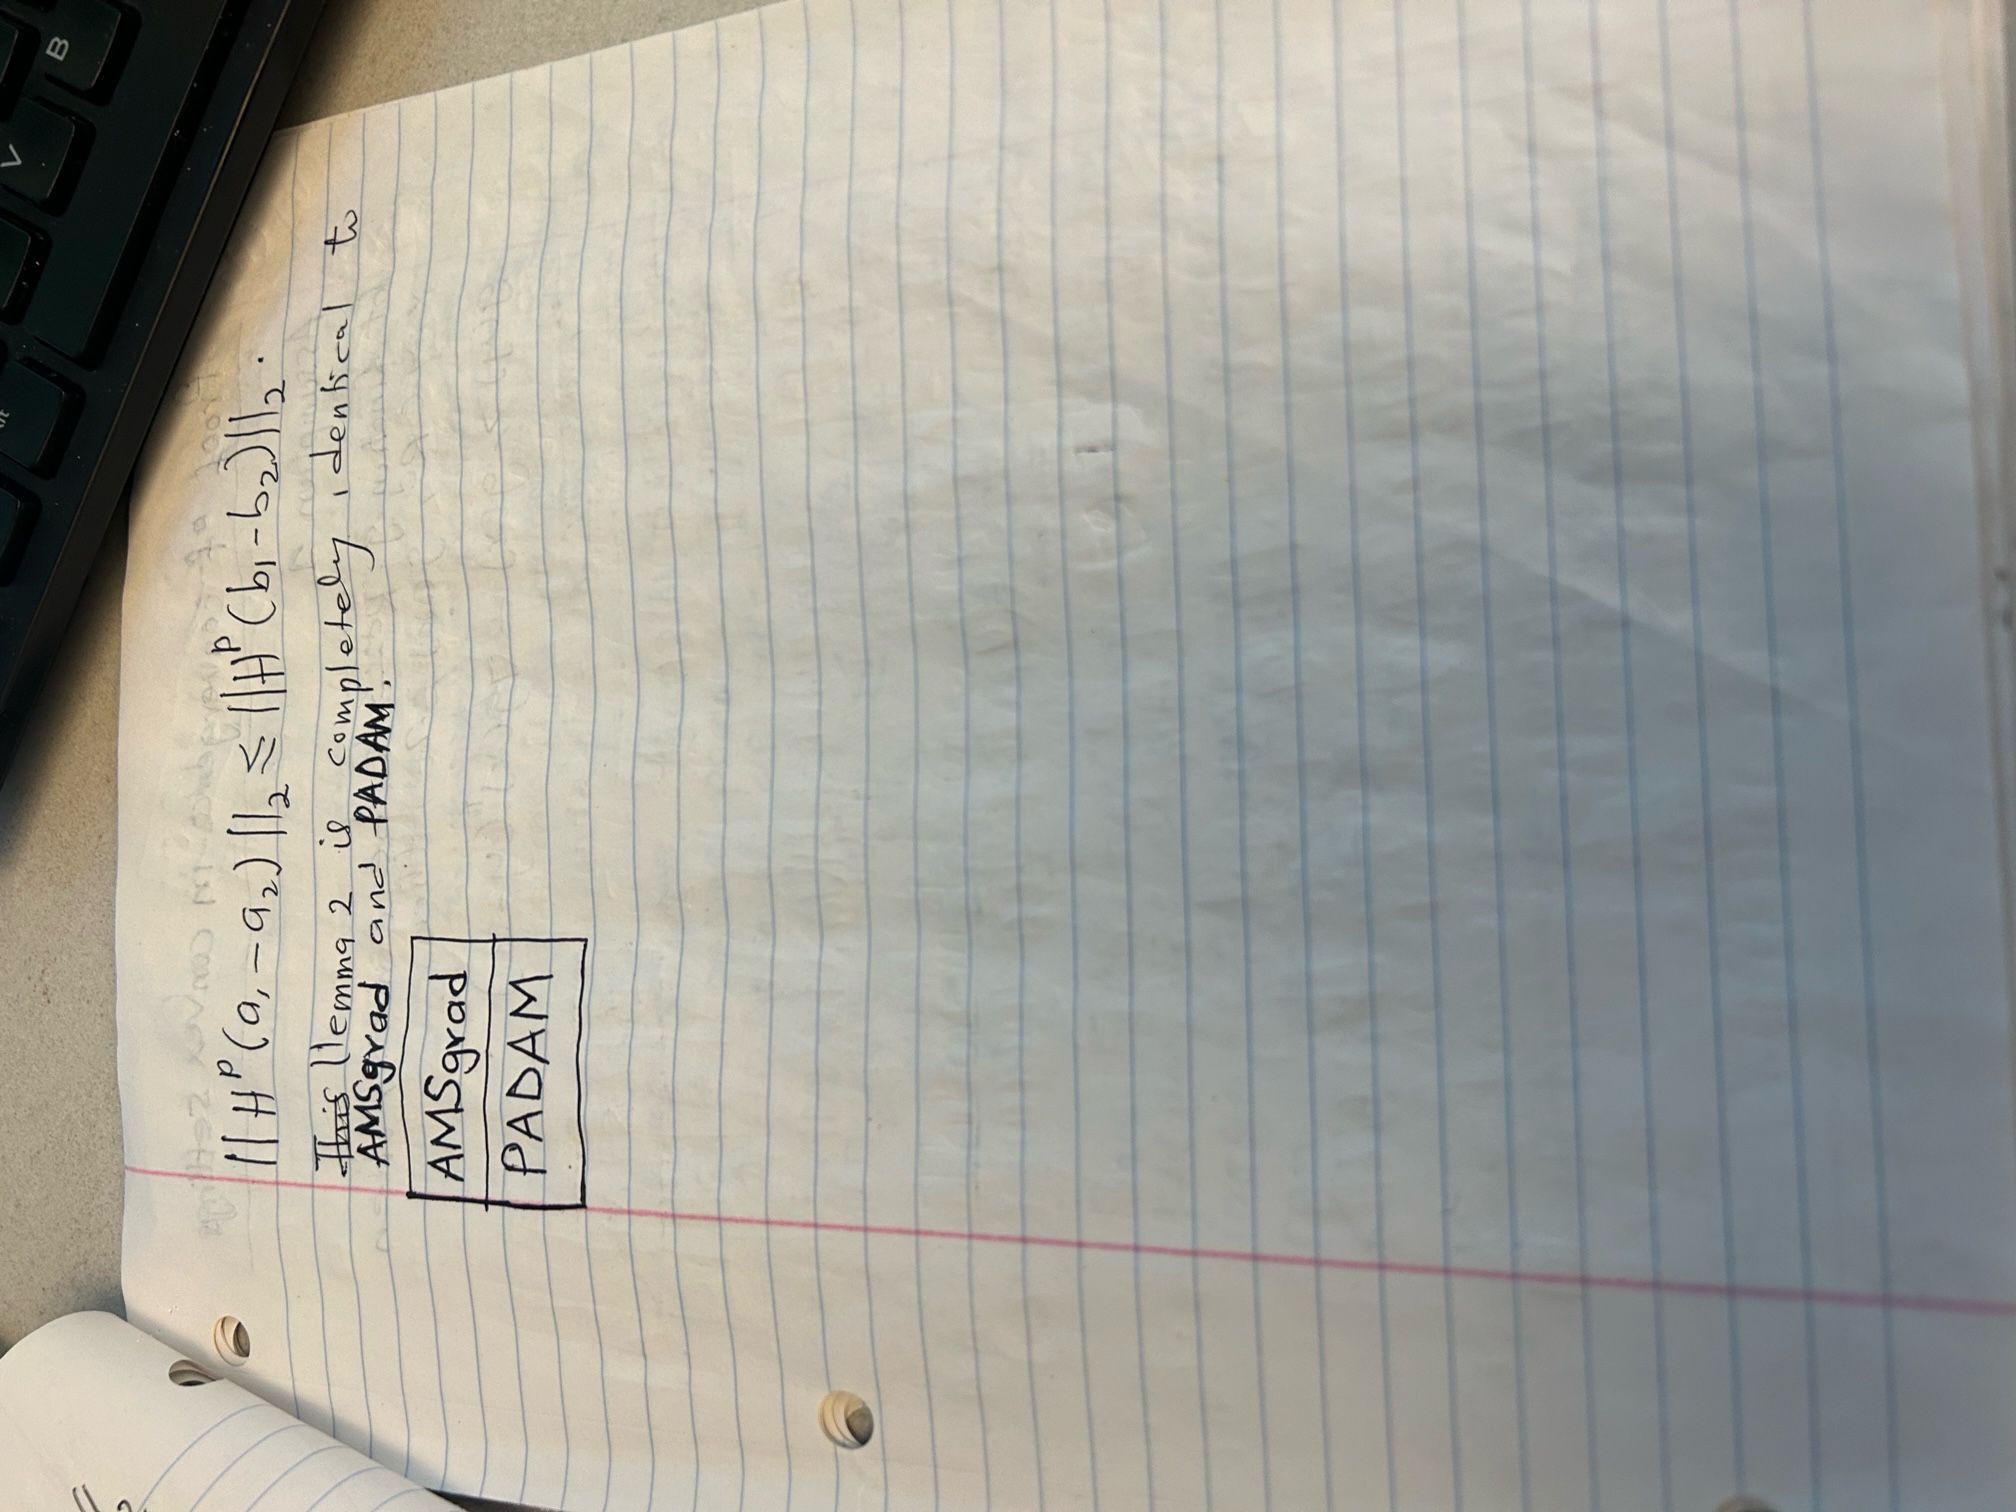 ||H^p(a₁-a₂)||₂ ≤ ||H^p(b₁-b₂)||₂.
This llemma 2 is completely identical to
AMSgrad and PADAM!
AMSgrad
PADAM
V
B